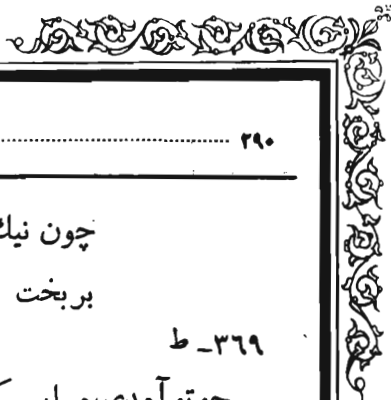 ۲۹۰
چون نیك
بر بخت
۳۶۹ـ ط